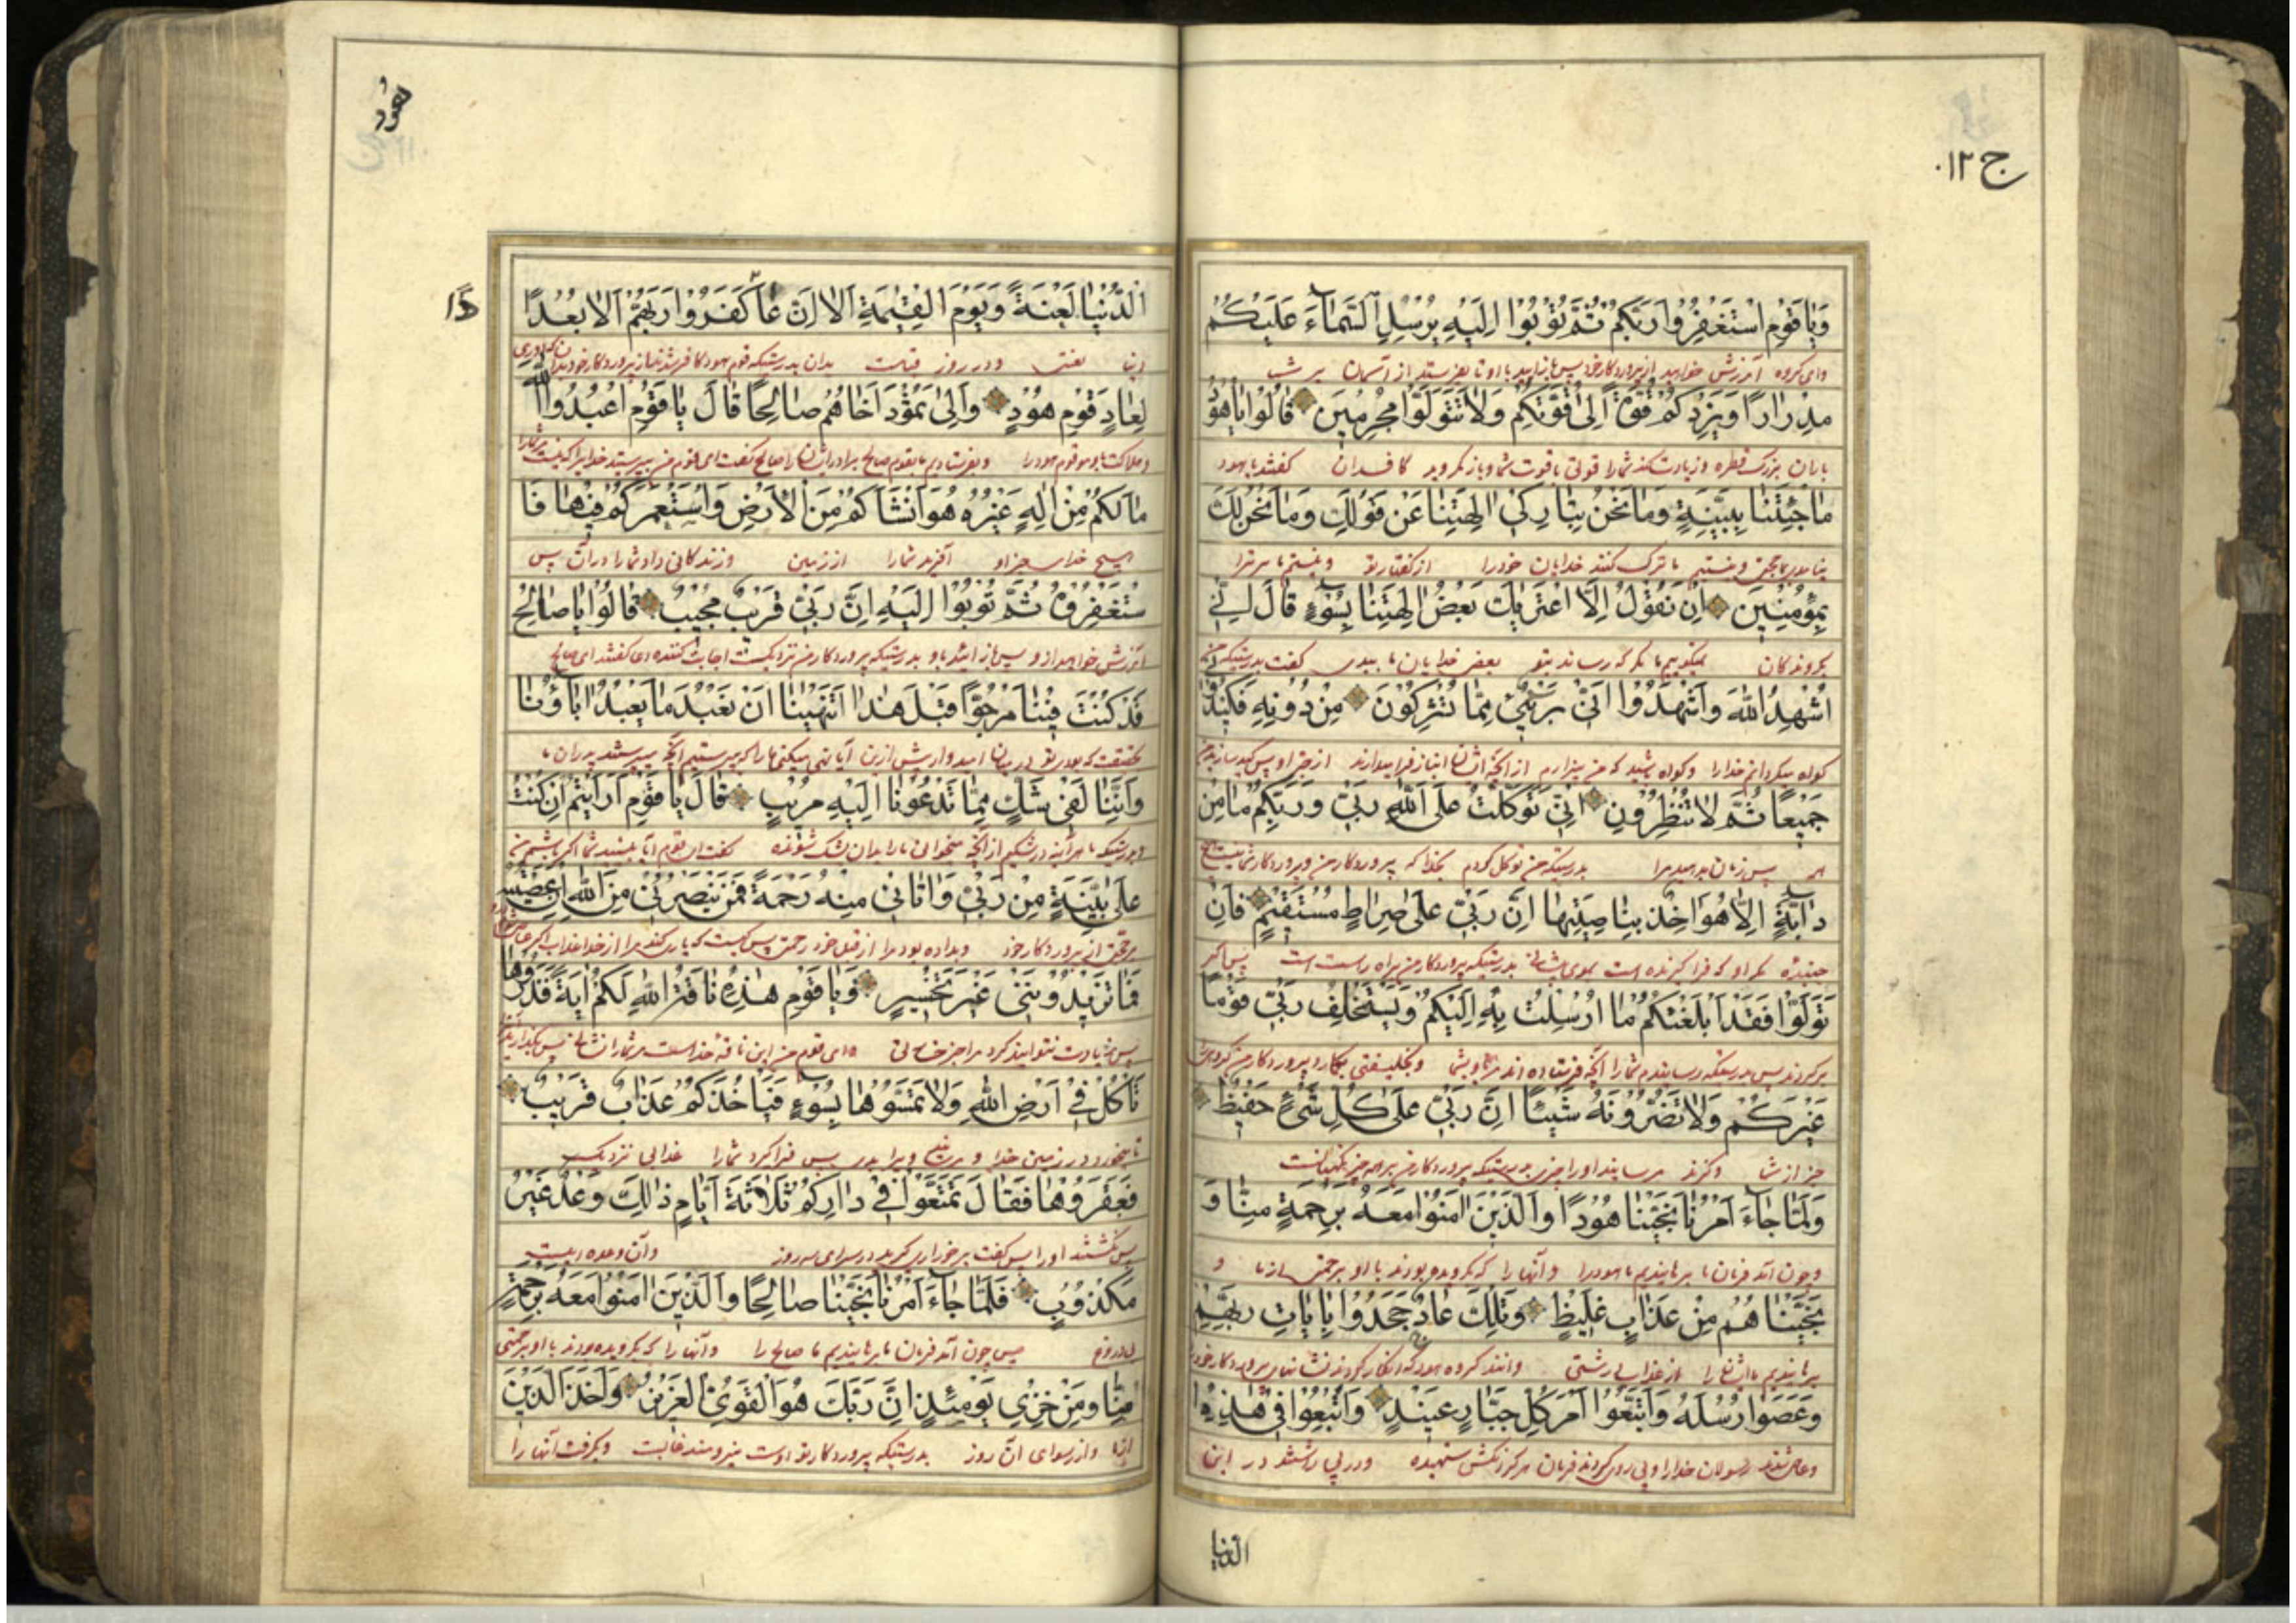 ج ١٢
وَيَا قَوْمِ اسْتَغْفِرُوا رَبَّكُمْ ثُمَّ تُوبُوا إِلَيْهِ يُرْسِلِ السَّمَاءَ عَلَيْكُمْ
وای کروه آمرزش خواهید از پروردکار خود پس باز آیید با او تا بفرستد از آسمان بر شما
مِدْرَارًا وَيَزِدْكُمْ قُوَّةً إِلَىٰ قُوَّتِكُمْ وَلَا تَتَوَلَّوْا مُجْرِمِينَ قَالُوا يَا هُودُ
باران بزرک قطره و زیادت کند شما را قوتی با قوت شما و باز مکردید کافران کفتند یا هود
مَا جِئْتَنَا بِبَيِّنَةٍ وَمَا نَحْنُ بِتَارِكِي آلِهَتِنَا عَنْ قَوْلِكَ وَمَا نَحْنُ لَكَ
و نیستیم ما ترک کننده خدایان خود را از کفتار تو و نیستیم ما مر ترا
بِمُؤْمِنِينَ إِنْ نَقُولُ إِلَّا اعْتَرَاكَ بَعْضُ آلِهَتِنَا بِسُوءٍ قَالَ إِنِّي
کروندکان نمیکوییم ما مکر که رسانید بتو بعض خدایان ما ببدی کفت بدرستیکه من
أُشْهِدُ اللَّهَ وَاشْهَدُوا أَنِّي بَرِيءٌ مِمَّا تُشْرِكُونَ مِنْ دُونِهِ فَكِيدُونِي
کواه میکردانم خدا را و کواه باشید که من بیزارم از آنچه انباز فرا میدارند از جز او پس
جَمِيعًا ثُمَّ لَا تُنْظِرُونِ إِنِّي تَوَكَّلْتُ عَلَى اللَّهِ رَبِّي وَرَبِّكُمْ مَا مِنْ
همه پس زمان مدهید مرا بدرستیکه من توکل کردم بخدا که پروردکار من و پروردکار شما نیست هیچ
دَابَّةٍ إِلَّا هُوَ آخِذٌ بِنَاصِيَتِهَا إِنَّ رَبِّي عَلَىٰ صِرَاطٍ مُسْتَقِيمٍ فَإِنْ
جنبنده مکر او که فرا کیرنده است موی پیشانی بدرستیکه پروردکار من براه راست است پس اکر
تَوَلَّوْا فَقَدْ أَبْلَغْتُكُمْ مَا أُرْسِلْتُ بِهِ إِلَيْكُمْ وَيَسْتَخْلِفُ رَبِّي قَوْمًا
برکردند پس بدرستیکه رسانیدم شما را آنچه فرستاده اند مرا بشما و بخلیفتی پروردکار من کروهی را
غَيْرَكُمْ وَلَا تَضُرُّونَهُ شَيْئًا إِنَّ رَبِّي عَلَىٰ كُلِّ شَيْءٍ حَفِيظٌ
جز از شما و کزند نرسانید او را چیزی بدرستیکه پروردکار من بر همه چیز نکهبانست
وَلَمَّا جَاءَ أَمْرُنَا نَجَّيْنَا هُودًا وَالَّذِينَ آمَنُوا مَعَهُ بِرَحْمَةٍ مِنَّا وَ
و چون آمد فرمان ما برهانیدیم ما هود را و آنها را که کرویده بودند با او برحمتی از ما و
نَجَّيْنَاهُمْ مِنْ عَذَابٍ غَلِيظٍ وَتِلْكَ عَادٌ جَحَدُوا بِآيَاتِ رَبِّهِمْ
برهانیدیم ما ایشانرا از عذاب درشتی انکار کردند نشانهای پروردکار خود
وَعَصَوْا رُسُلَهُ وَاتَّبَعُوا أَمْرَ كُلِّ جَبَّارٍ عَنِيدٍ وَأُتْبِعُوا فِي هَٰذِهِ
و عاصی شدند رسولان خدا را و پی روی کردند فرمان هر کردنکش ستیهنده و در پی داشتند در این
الدنیا
هود
الدُّنْيَا لَعْنَةً وَيَوْمَ الْقِيٰمَةِ أَلَا إِنَّ عَادًا كَفَرُوا رَبَّهُمْ أَلَا بُعْدًا
دنیا لعنتی و در روز قیامت بدان بدرستیکه قوم هود کافر شدند
لِعَادٍ قَوْمِ هُودٍ وَإِلَىٰ ثَمُودَ أَخَاهُمْ صَالِحًا قَالَ يَا قَوْمِ اعْبُدُوا اللَّهَ
و بفرستادیم بقوم صالح برادر ایشان را صالح کفت ای قوم من بپرستید خدایرا که نیست مر شما را
مَا لَكُمْ مِنْ إِلَٰهٍ غَيْرُهُ هُوَ أَنْشَأَكُمْ مِنَ الْأَرْضِ وَاسْتَعْمَرَكُمْ فِيهَا فَا
هیچ خدای جز او آفرید شما را از زمین و زندکانی داد شما را در آن پس
سْتَغْفِرُوهُ ثُمَّ تُوبُوا إِلَيْهِ إِنَّ رَبِّي قَرِيبٌ مُجِيبٌ قَالُوا يَا صَالِحُ
آمرزش خواهید از او پس باز آیید باو بدرستیکه پروردکار من نزدیکست اجابت کننده کفتند ای صالح
قَدْ كُنْتَ فِينَا مَرْجُوًّا قَبْلَ هَٰذَا أَتَنْهَيٰنَا أَنْ نَعْبُدَ مَا يَعْبُدُ آبَاؤُنَا
پیش ازین آیا نهی میکنی ما را که بپرستیم آنچه میپرستند پدران ما
وَإِنَّنَا لَفِي شَكٍّ مِمَّا تَدْعُونَا إِلَيْهِ مُرِيبٍ قَالَ يَا قَوْمِ أَرَأَيْتُمْ إِنْ كُنْتُ
و بدرستیکه ما هر آینه در شکیم از آنچه میخوانی ما را بدان
عَلَىٰ بَيِّنَةٍ مِنْ رَبِّي وَآتَانِي مِنْهُ رَحْمَةً فَمَنْ يَنْصُرُنِي مِنَ اللَّهِ إِنْ عَصَيْتُهُ
بر حجتی از پروردکار خود و بداده بود مرا از قبل خود رحمتی پس کیست که یاری کند مرا از خدا
فَمَا تَزِيدُونَنِي غَيْرَ تَخْسِيرٍ وَيَا قَوْمِ هَٰذِهِ نَاقَةُ اللَّهِ لَكُمْ آيَةً فَذَرُوهَا
پس زیادت نتوانید کرد مرا جز وای قوم من این ناقه خداست مر شما را
تَأْكُلْ فِي أَرْضِ اللَّهِ وَلَا تَمَسُّوهَا بِسُوءٍ فَيَأْخُذَكُمْ عَذَابٌ قَرِيبٌ
تا بخورد در زمین خدا پس فرا کیرد شما را عذابی نزدیک
فَعَقَرُوهَا فَقَالَ تَمَتَّعُوا فِي دَارِكُمْ ثَلَاثَةَ أَيَّامٍ ذَٰلِكَ وَعْدٌ غَيْرُ
پس بکشتند او را پس کفت برخورداری کیرید در سرای سه روز و آن وعده ایست
مَكْذُوبٍ فَلَمَّا جَاءَ أَمْرُنَا نَجَّيْنَا صَالِحًا وَالَّذِينَ آمَنُوا مَعَهُ بِرَحْمَةٍ
بی دروغ پس چون آمد فرمان ما برهانیدیم ما صالح را و آنها را که کرویده بودند با او برحمتی
مِنَّا وَمِنْ خِزْيِ يَوْمِئِذٍ إِنَّ رَبَّكَ هُوَ الْقَوِيُّ الْعَزِيزُ وَأَخَذَ الَّذِينَ
از ما و از رسوای آن روز بدرستیکه پروردکار تو اوست نیرومند غالب و بکرفت آنها را